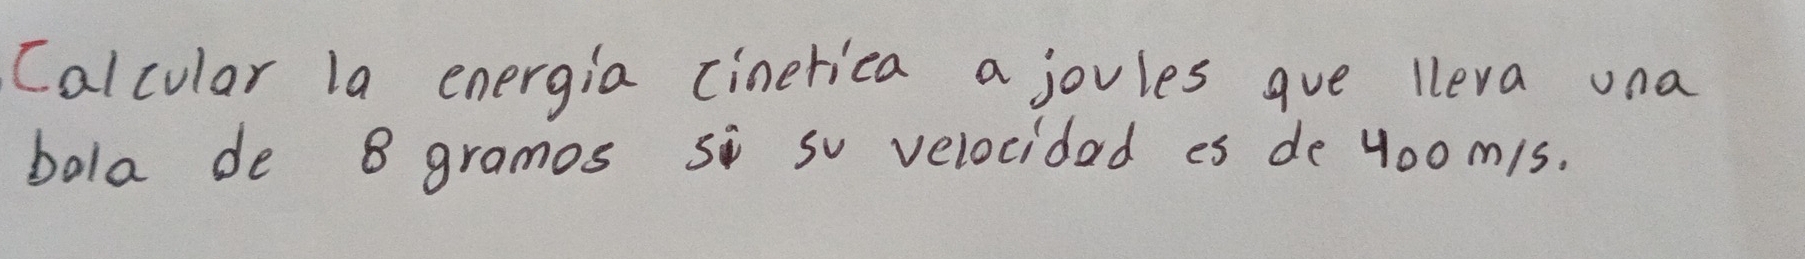 Calcular la energía cinetica a joules que lleva una
bola de 8 gramos si su velocidad es de 400 m/s.